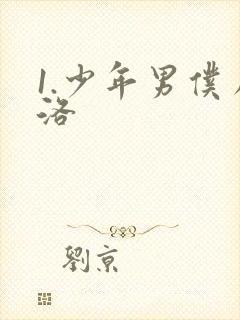 1.少年男僕
洛
劉京